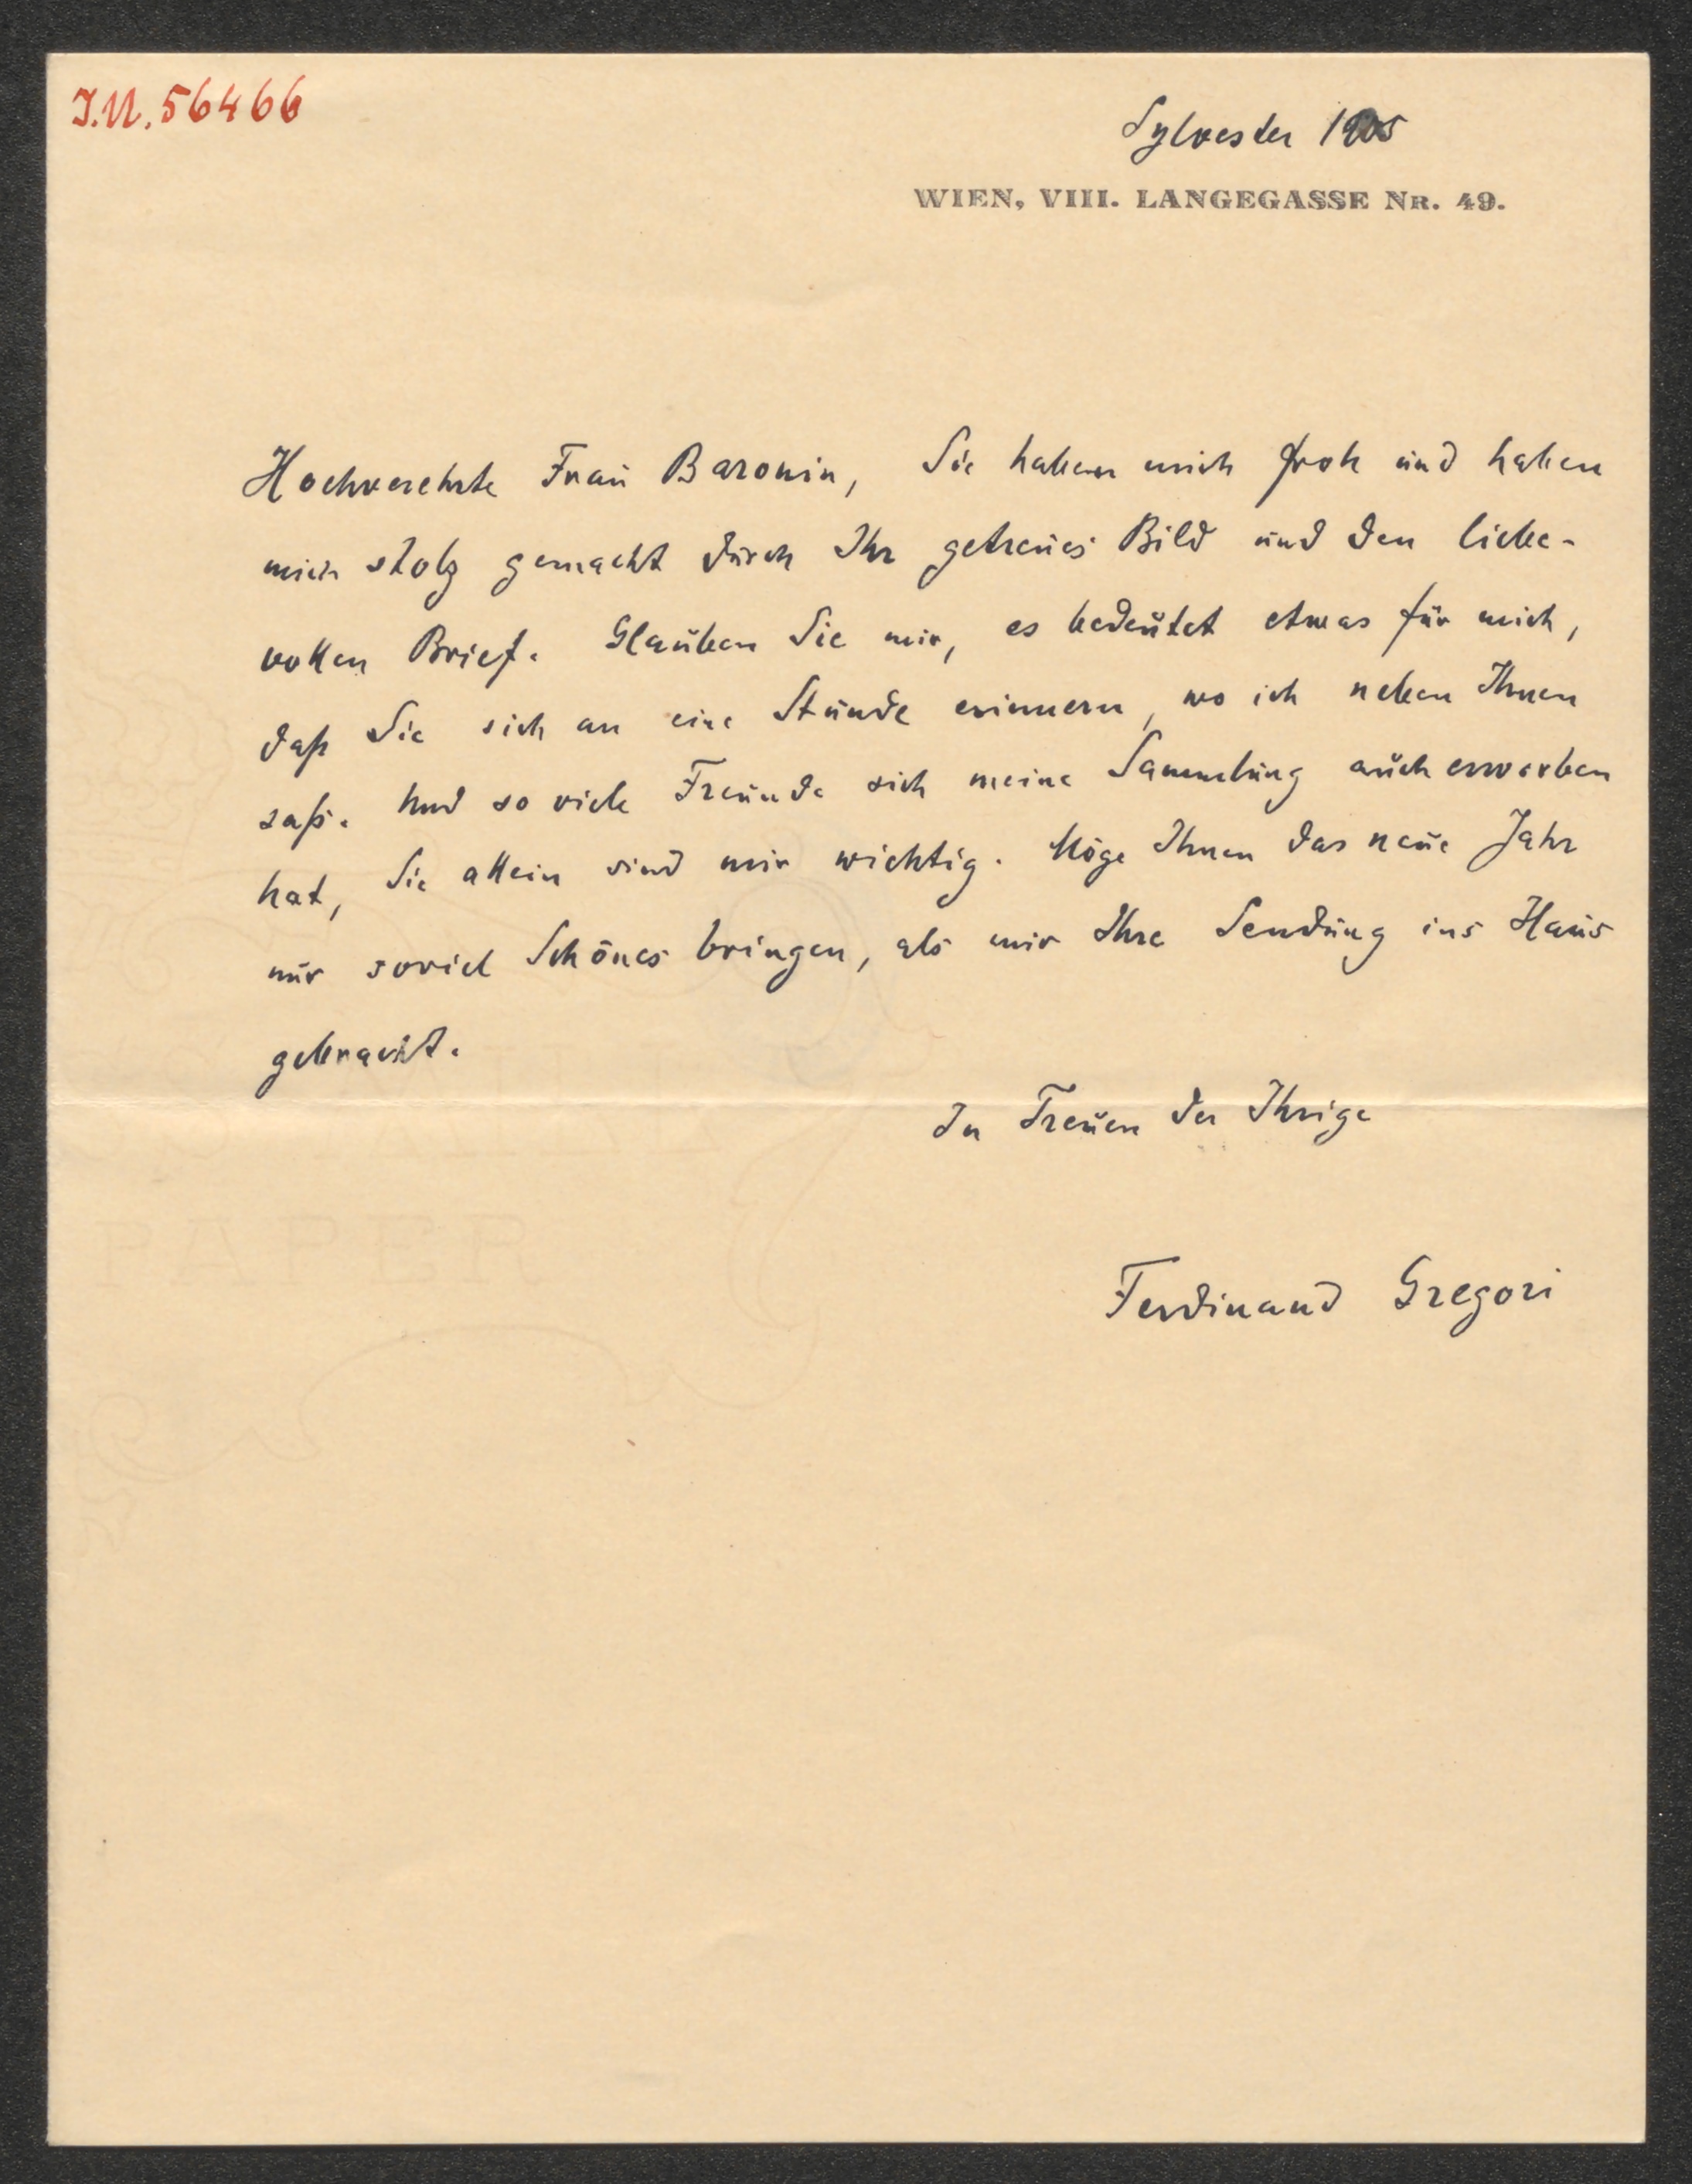 I.N. 56466
Sylvester 1905
WIEN, VIII. LANGEGASSE NR. 49.
Hochverehrte Frau Baronin, Sie haben mich froh und haben
mich stolz gemacht durch Ihr getreues Bild und den liebe-
vollen Brief. Glauben Sie mir, es bedeutet etwas für mich,
daß Sie sich an eine Stunde erinnern, wo ich neben Ihnen
saß. Und so viele Freunde sich meine Sammlung auch erworben
hat, Sie allein sind mir wichtig. Möge Ihnen das neue Jahr
nur soviel Schönes bringen, als mir Ihre Sendung ins Haus
gebracht.
In Treuen der Ihrige
Ferdinand Gregori
PAPER